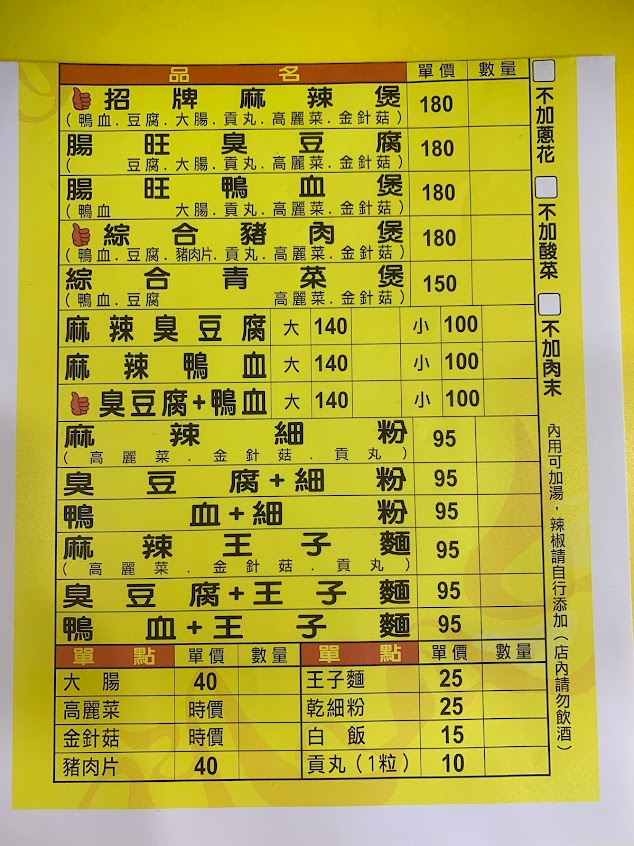 品 名 單價 數量
招牌麻辣煲 180
(鴨血.豆腐.大腸.貢丸.高麗菜.金針菇)
腸旺臭豆腐 180
( 豆腐.大腸.貢丸.高麗菜.金針菇)
腸旺鴨血煲 180
(鴨血 大腸.貢丸.高麗菜.金針菇)
綜合豬肉煲 180
(鴨血.豆腐.豬肉片.貢丸.高麗菜.金針菇)
綜合青菜煲 150
(鴨血.豆腐 高麗菜.金針菇)
麻辣臭豆腐 大 140 小 100
麻辣鴨血 大 140 小 100
臭豆腐+鴨血 大 140 小 100
麻辣細粉 95
(高麗菜.金針菇.貢丸)
臭豆腐+細粉 95
鴨血+細粉 95
麻辣王子麵 95
(高麗菜.金針菇.貢丸)
臭豆腐+王子麵 95
鴨血+王子麵 95
單點 單價 數量 單點 單價 數量
大腸 40 王子麵 25
高麗菜 時價 乾細粉 25
金針菇 時價 白飯 15
豬肉片 40 貢丸(1粒) 10
不加蔥花
不加酸菜
不加肉末
內用可加湯，辣椒請自行添加(店內請勿飲酒)